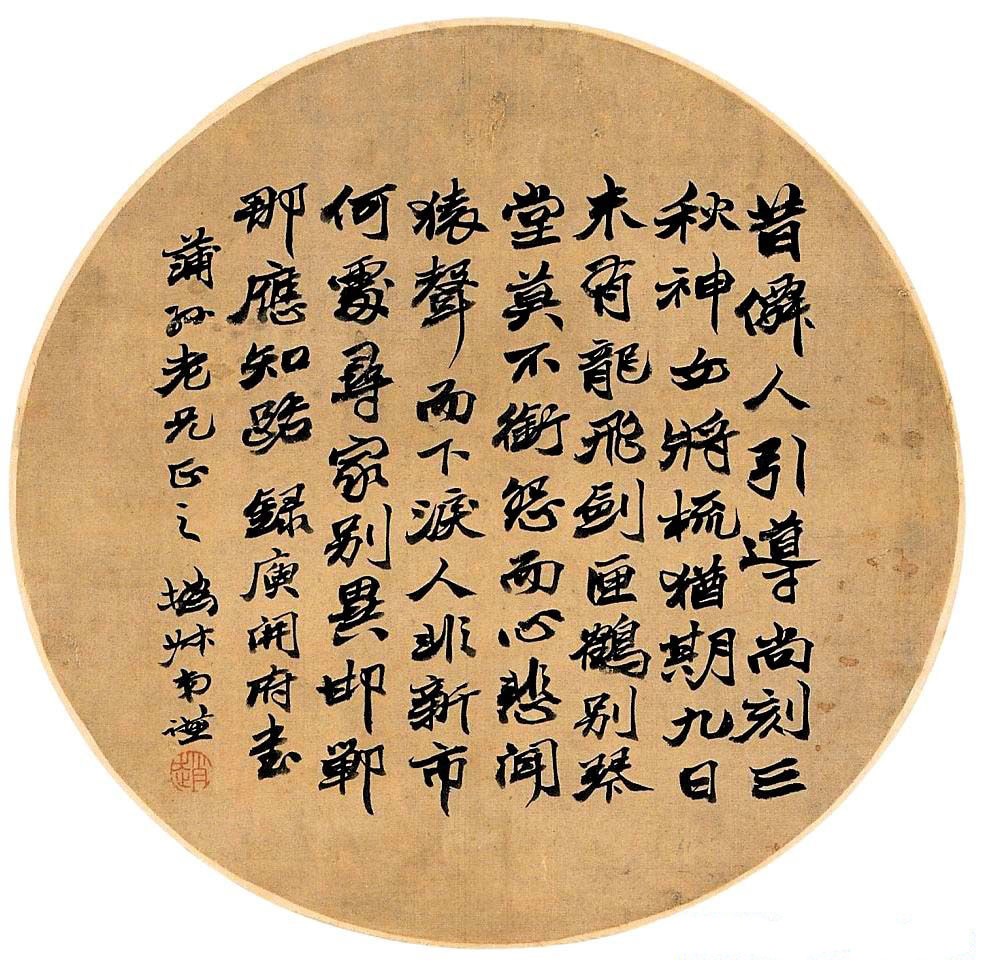 昔僊人引導尚刻三
秋神女將梳猶期九日
未有龍飛劍匣鶴別琴
堂莫不銜怨而心悲聞
猿聲而下淚人非新市
何處尋家別異邯鄲
那應知路 錄庾開府書
蒲孫老兄正之 撝叔弟謙
趙